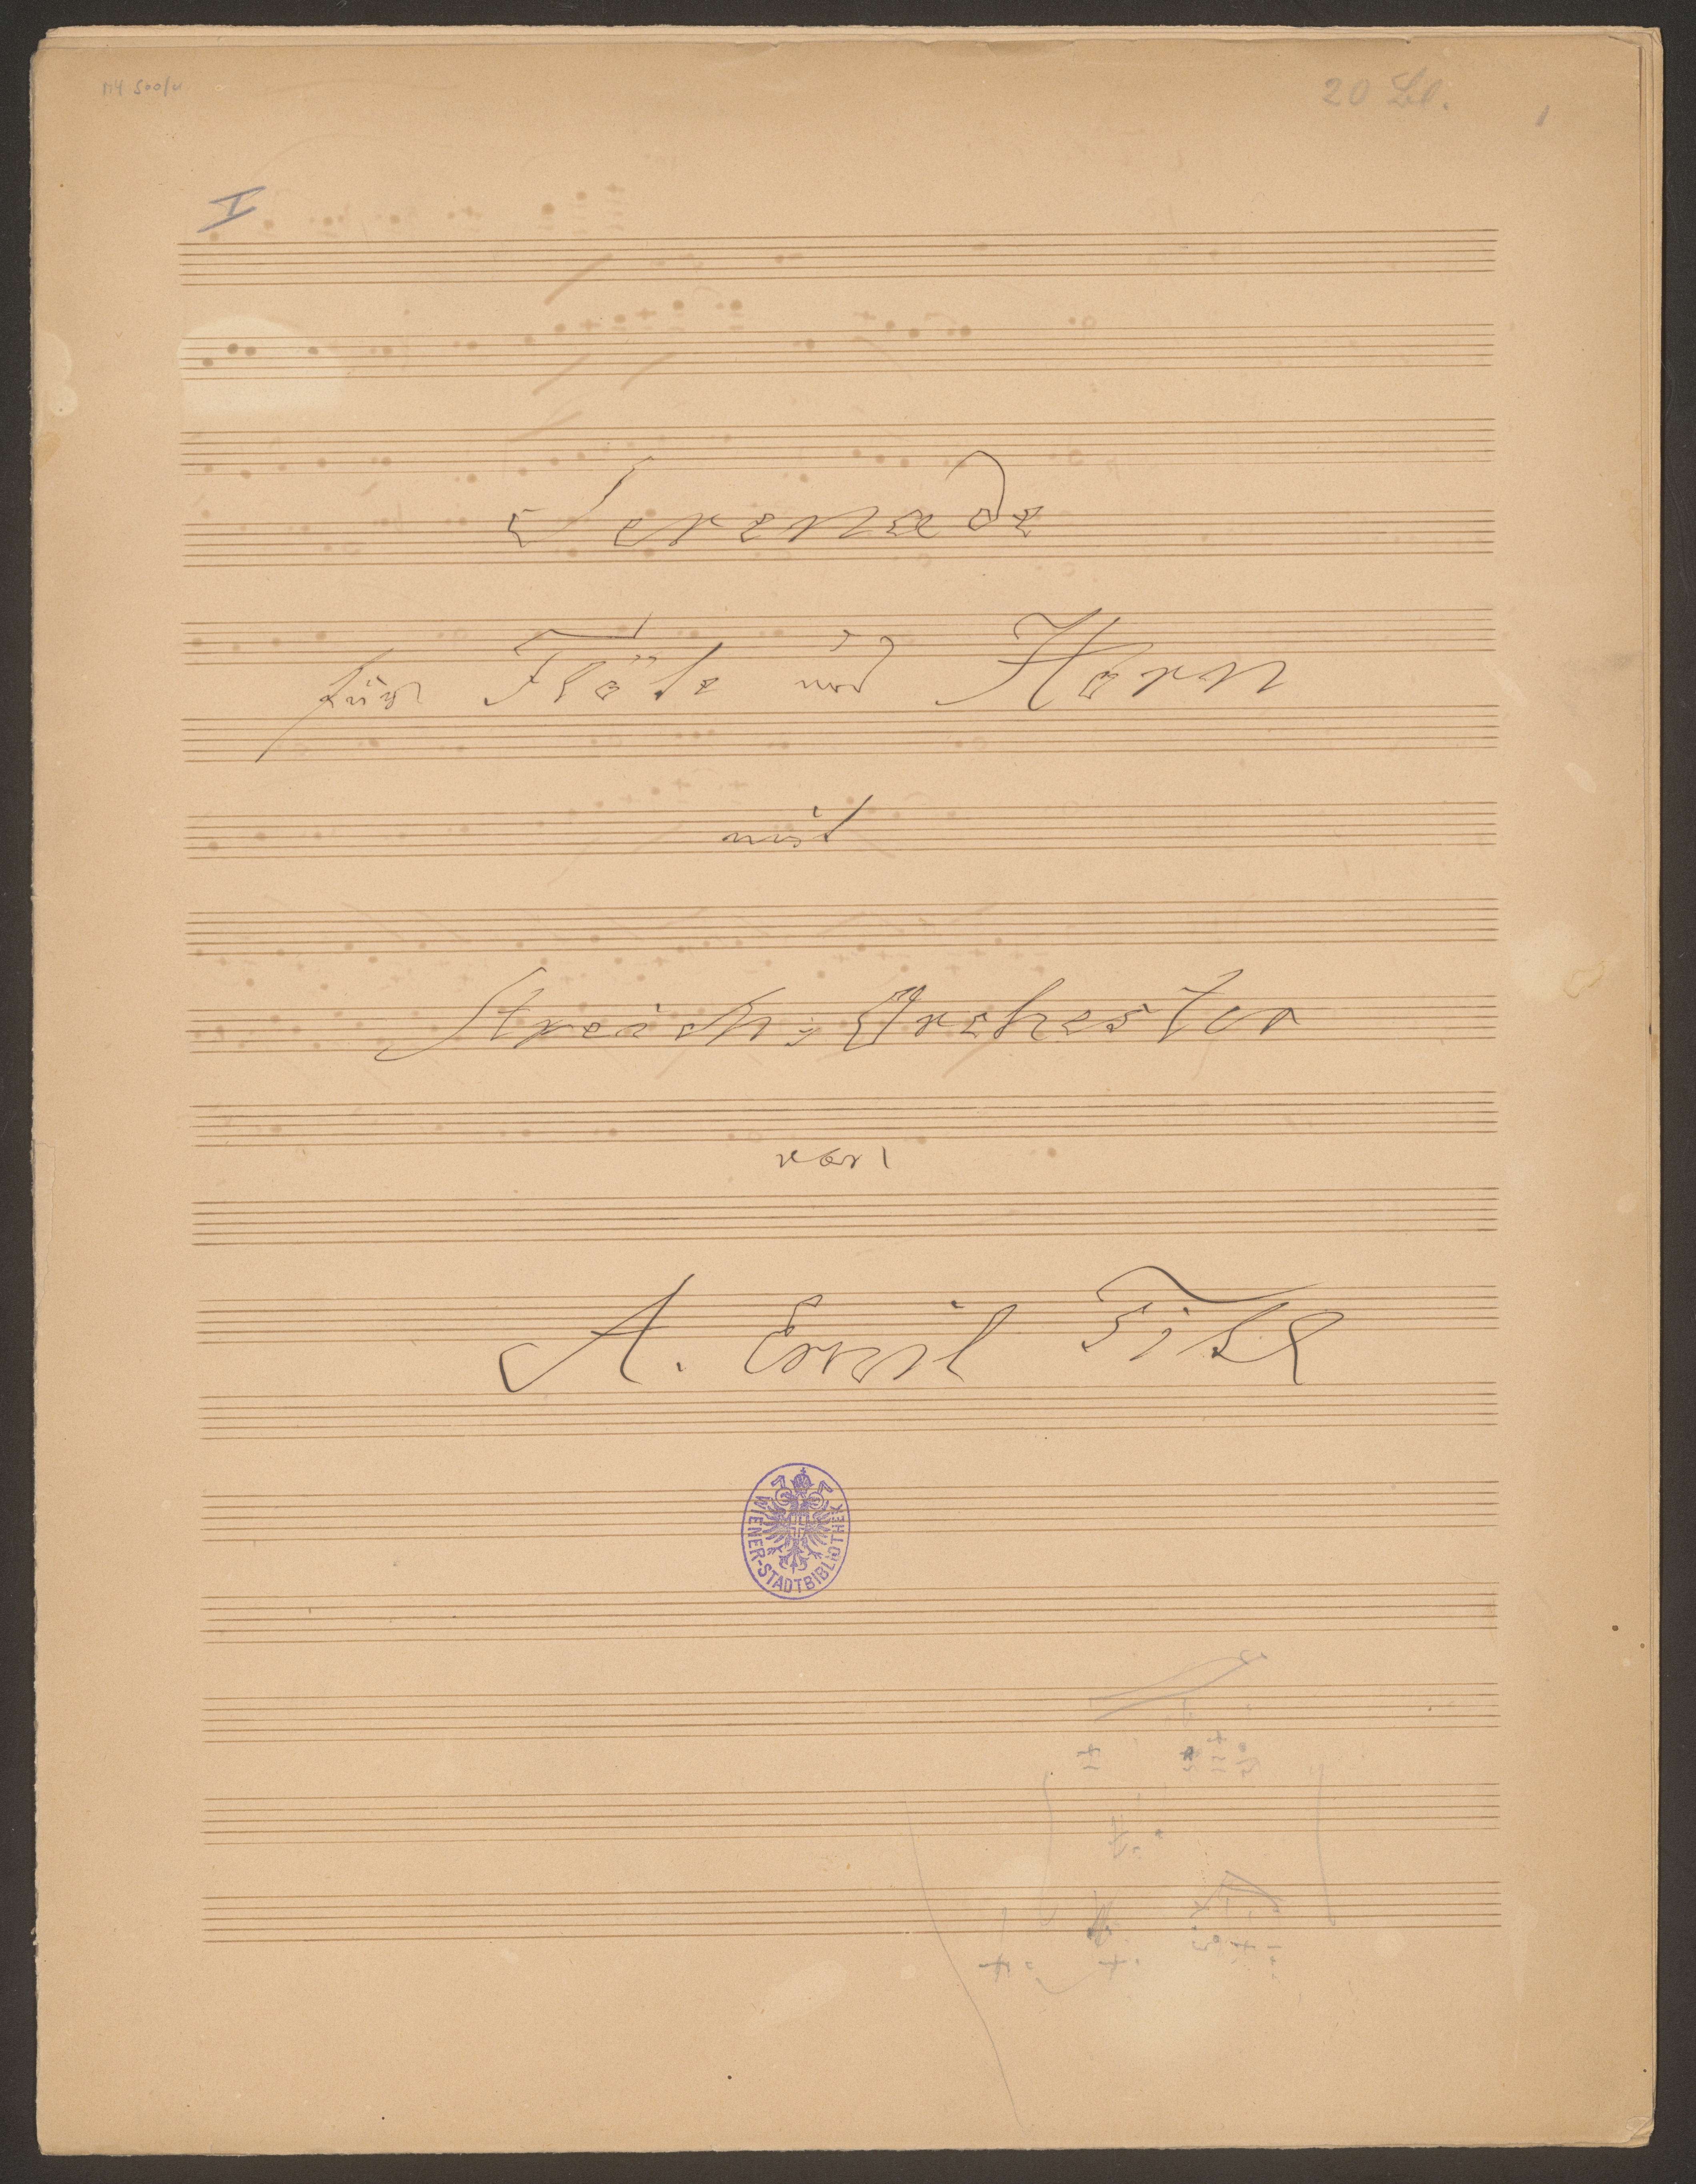 MH 500/c
20 Bl.
1
I
Serenade
für Flöte und Horn
mit
Streich-Orchester
von
A. Emil Titl
WIENER-STADTBIBLIOTHEK